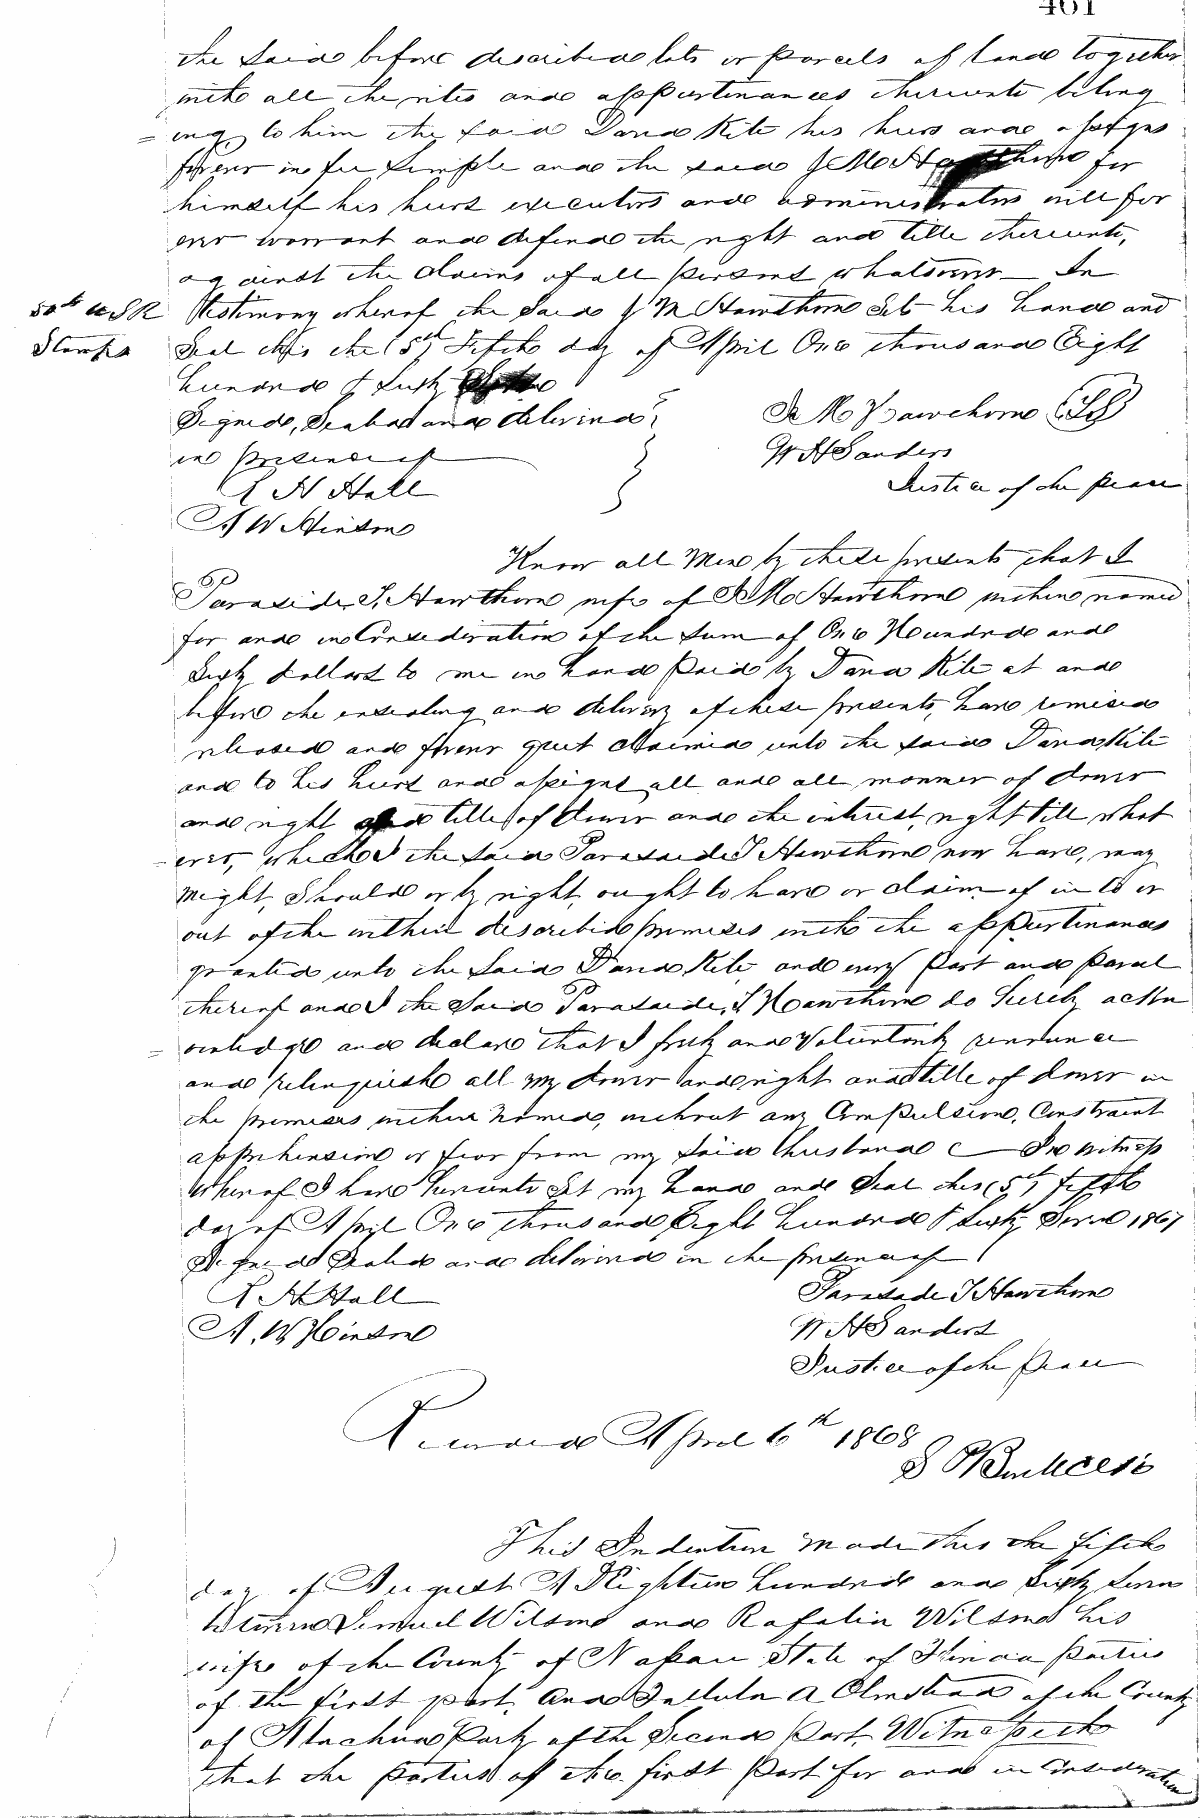 461
the said before described lots or parcels of land together
with all the rites and appurtinances thereunto belong
=ing to him the said Dana Kite his heirs and assigns
forever in fee simple and the said J M Hawthorne for
himself his heirs executors and administrators will for
ever warrant and defend the right and title thereunto,
against the claims of all persons whatsoever — In
50 cts U S R Testimony whereof the Said J M Hawthorne Sets his hand and
Stamps Seal this the (5th) Fifth day of April One thousand Eight
hundred & Sixty
Signed, Sealed and delivered J M Hawthorne (LS)
in presence of W H Sanders
R H Hall Justice of the peace
A W Hinson
Know all Men by these presents that I
Parasade T. Hawthorne wife of J M Hawthorne within named
for and in Consideration of the Sum of One Hundred and
Sixty dollars to me in hand paid by Dana Kite at and
before the ensealing and delivery of these presents, have remised
released and forever quit claimed unto the said Dana Kite
and to his heirs and assigns all and all manner of dower
and right and title of dower and the interest, right title what
=ever, which I the said Parasaide T Hawthorne now have, may
might, Should or by right, ought to have or claim of in to or
out of the within described premises with the appurtinances
granted unto the Said Dana Kite, and every part and parcel
thereof and I the Said Parasaide, T Hawthorne do hereby ackn
=owledge and declare that I freely and Voluntarily renounce
and relinquish all my dower and right and title of dower in
the premises within named, without any Compulsion, Constraint
apprehension or fear from my said husband — In witness
whereof I have hereunto Set my hand and Seal this (5th) fifth
day of April One thousand Eight hundred & Sixty Seven 1867
Signed Sealed and delivered in the presence of
R H Hall Parasade T Hawthorne
A. W Hinson W H Sanders
Justice of the Peace
Recorded April 6th 1868
This Indenture Made this the fifth
day of August A D Eighteen hundred and Sixty Seven
between Samuel Wilson and Rafalia Wilson his
wife of the County of Nassau State of Florida parties
of the first part, And Tallula A Olmstead of the County
of Alachua Party of the Second Part, Witnesseth
that the parties of the first Part for and in Consideration